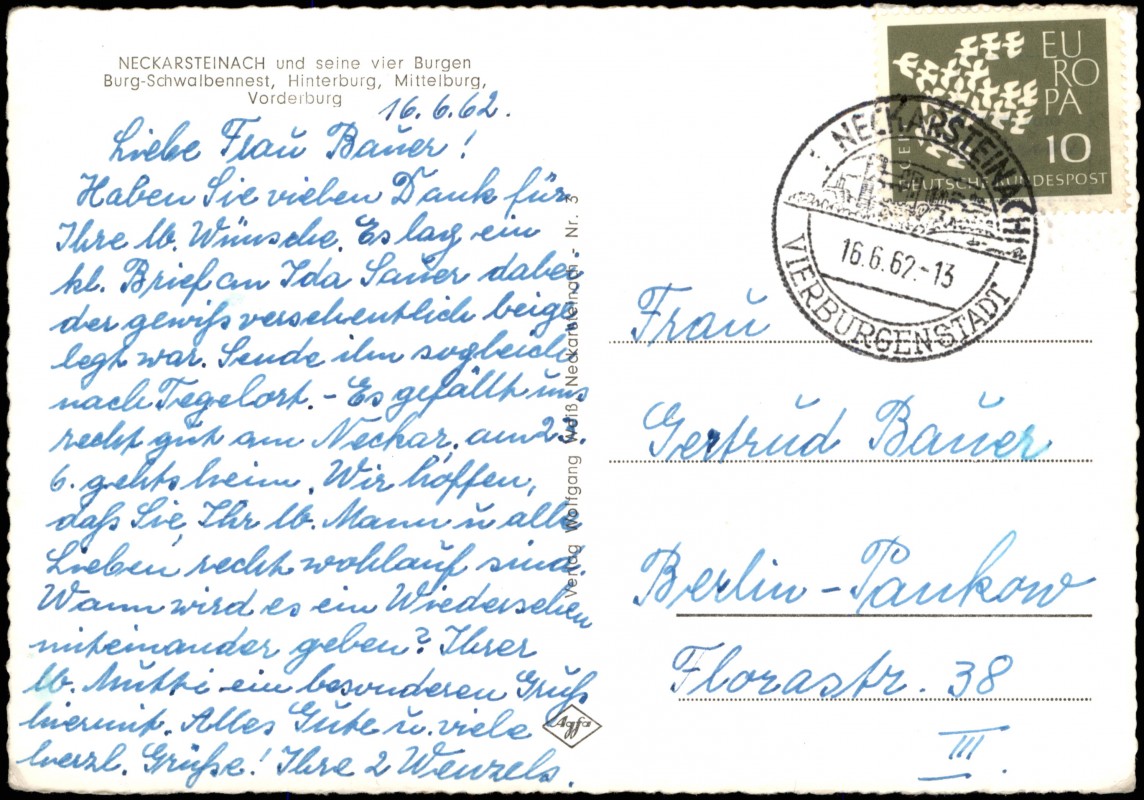 NECKARSTEINACH und seine vier Burgen
Burg-Schwalbennest, Hinterburg, Mittelburg,
Vorderburg
16.6.62.
Liebe Frau Bauer!
Haben Sie vielen Dank für
Ihre lb. Wünsche. Es lag ein
kl. Brief an Ida Sauer dabei
der gewiß versehentlich beige
legt war. Sende ihn sogleich
nach Tegelort. - Es gefällt uns
recht gut am Neckar, am 23.
6. gehts heim. Wir hoffen,
daß Sie, Ihr lb. Mann u alle
Lieben, recht wohlauf sind.
Wann wird es ein Wiedersehen
miteinander geben? Ihrer
lb. Mutti ein besonderen Gruß
hiermit. Alles Gute u. viele
herzl. Grüße! Ihre 2 Wenzels.
Verlag Wolfgang Weiß, Neckarsteinach - Nr. 3
Agfa
EU
RO
PA
10
DEUTSCHE BUNDESPOST
NECKARSTEINACH
16.6.62.-13
VIERBURGENSTADT
Frau
Gertrud Bauer
Berlin-Pankow
Florastr. 38
III.